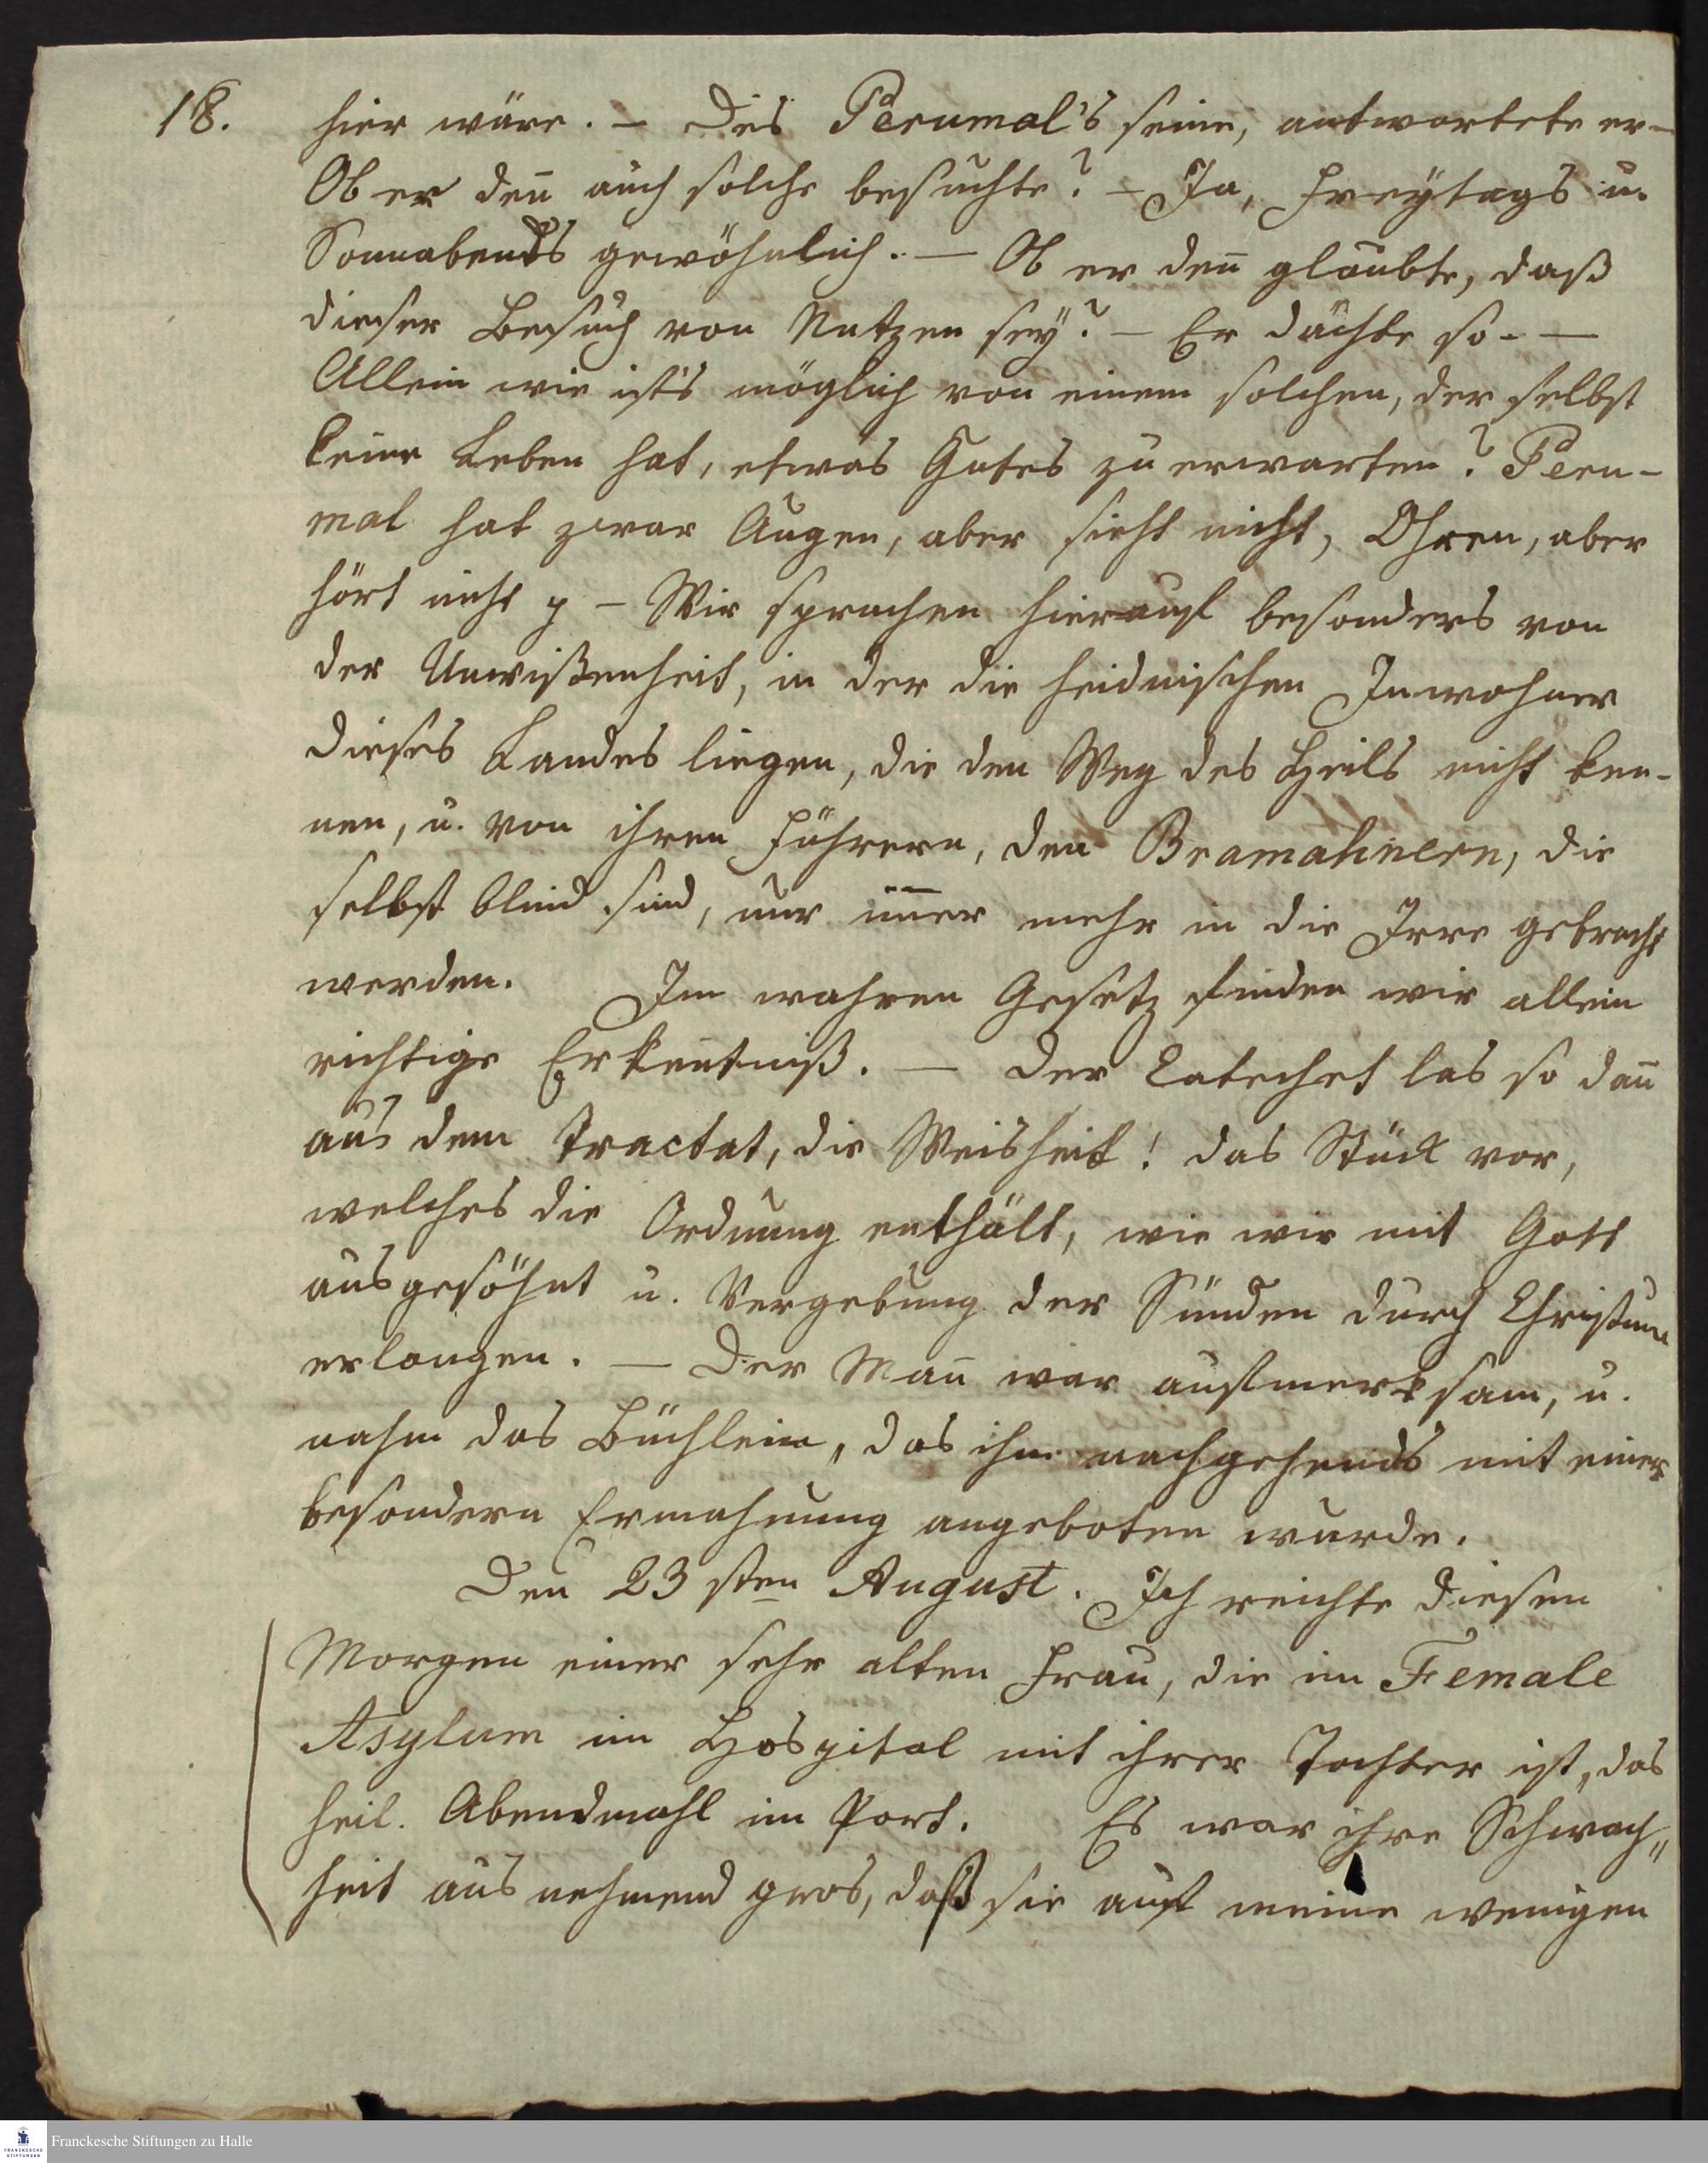 18.
hier wäre. — Des Perumal's seine, antwortete er —
Ob er deñ auch solche besuchte? — Ja, Freÿtags u.
Sonnabends gewöhnlich. — Ob er deñ glaubte, daß
dieser Besuch von Nutzen seÿ? — Er dächte so. —
Allein wie ists möglich von einem solchen, der selbst
keine Leben hat, etwas Gutes zu erwarten? Peru-
mal hat zwar Augen, aber sieht nicht, Ohren, aber
hört nicht p — Wir sprachen hierauf besonders von
der Unwißenheit, in der die heidnischen Inwohner
dieses Landes liegen, die den Weg des Heils nicht ken-
nen, u. von ihren Führern, den Bramahnern, die
selbst blind sind, nur im̄er mehr in die Irre gebracht
werden. Im wahren Gesetz finden wir allein
richtige Erkentniß. — Der Catechet las so dañ
aus dem Tractat, die Weisheit! das Stück vor,
welches die Ordnung enthält, wie wir mit Gott
ausgesöhnt u. Vergebung der Sünden durch Christum
erlangen. — Der Mañ war aufmerksam, u.
nahm das Büchlein, das ihm nachgehends mit einer
besondern Ermahnung angeboten wurde.
Den 23sten August. Ich reichte diesen
Morgen einer sehr alten Frau, die im Female
Asylum im Hospital mit ihrer Tochter ist, das
heil. Abendmahl im Port. Es war ihre Schwach„
heit aus nehmend gros, daß sie auf meine wenigen
FRANCKESCHE STIFTUNGEN
Franckesche Stiftungen zu Halle